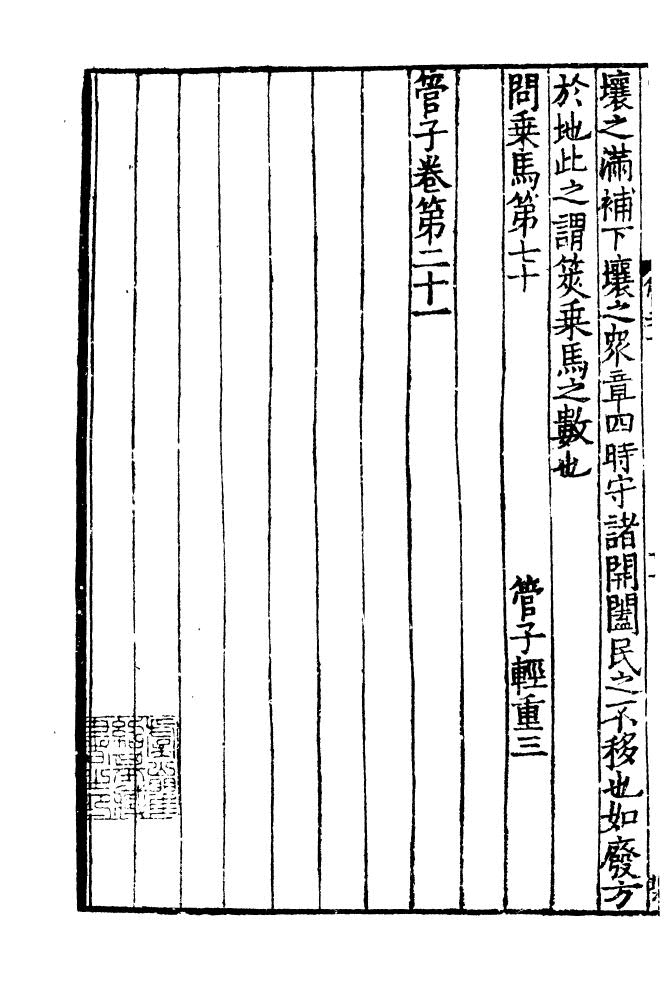 壤之滿補下壤之衆章四時守諸開闔民之不移也如廢方
於地此之謂筴乗馬之數也
問乗馬第七十 管子輕重三
管子卷第二十一